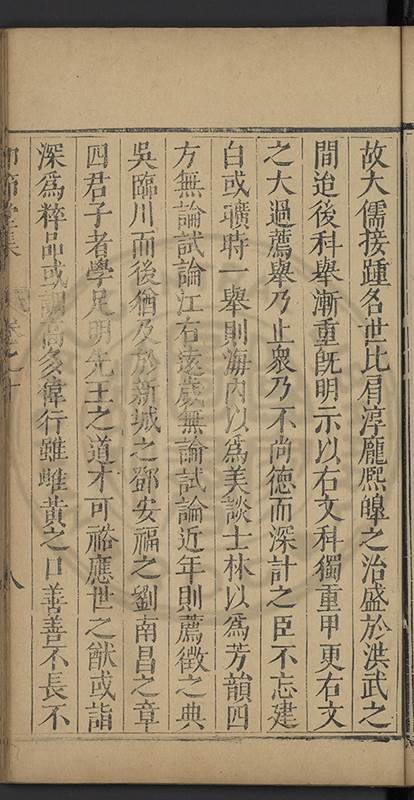 故大儒接踵名世比肩淳龐熈皥之治盛於洪武之
間迨後科舉漸重旣明示以右文科獨重甲更右文
之大過薦舉乃止衆乃不尚德而深計之臣不忘建
白或曠時一舉則海內以爲美談士林以爲芳韻四
方無論試論江右遠歲無論試論近年則薦徵之典
吳臨川而後猶及於新城之鄧安福之劉南昌之章
四君子者學足明先王之道才可裕應世之猷或詣
深爲粹品或調高多偉行雖雌黃之口善善不長不
卷之十
八